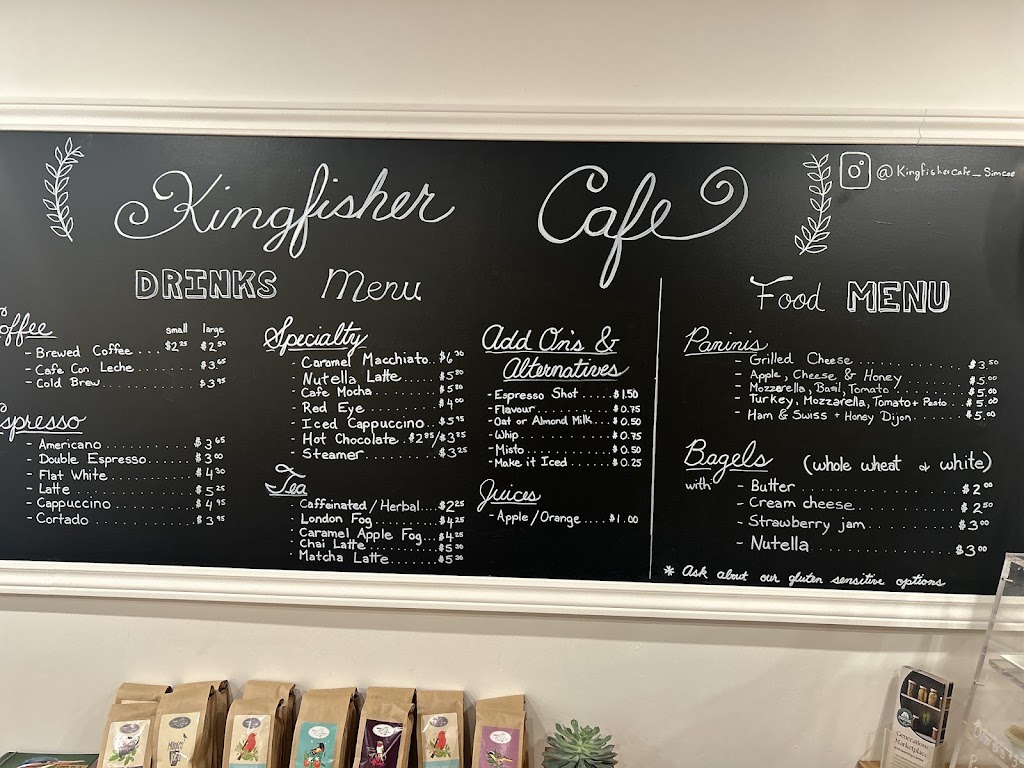 Kingfisher Cafe
@Kingfishercafe_Simcoe
DRINKS Menu
Coffee
small large
- Brewed Coffee ... $2.25 $2.50
- Cafe Con Leche ........ $3.65
- Cold Brew ........ $3.95
Espresso
- Americano ........ $3.65
- Double Espresso ...... $3.00
- Flat White ........ $4.30
- Latte ........ $5.25
- Cappuccino ........ $4.95
- Cortado ........ $3.95
Specialty
- Caramel Macchiato.. $6.30
- Nutella Latte.... $5.80
- Cafe Mocha...... $5.80
- Red Eye ........ $4.00
- Iced Cappuccino.. $5.95
- Hot Chocolate. $2.85/$3.85
- Steamer........ $3.25
Tea
- Caffeinated / Herbal... $2.25
- London Fog....... $4.25
- Caramel Apple Fog... $4.25
- Chai Latte........ $5.30
- Matcha Latte...... $5.30
Add On's &
Alternatives
- Espresso Shot .... $1.50
- Flavour........ $0.75
- Oat or Almond Milk... $0.50
- Whip........ $0.75
- Misto........ $0.50
- Make it Iced.... $0.25
Juices
- Apple/Orange.... $1.00
Food MENU
Paninis
- Grilled Cheese ........ $3.50
- Apple, Cheese & Honey ........ $5.00
- Mozzarella, Basil, Tomato ...... $5.00
- Turkey, Mozzarella, Tomato + Pesto... $5.00
- Ham & Swiss + Honey Dijon...... $5.00
Bagels (whole wheat & white)
with
- Butter ........ $2.00
- Cream cheese ........ $2.50
- Strawberry jam........ $3.00
- Nutella ........ $3.00
* Ask about our gluten sensitive options
Generations
Marketplace